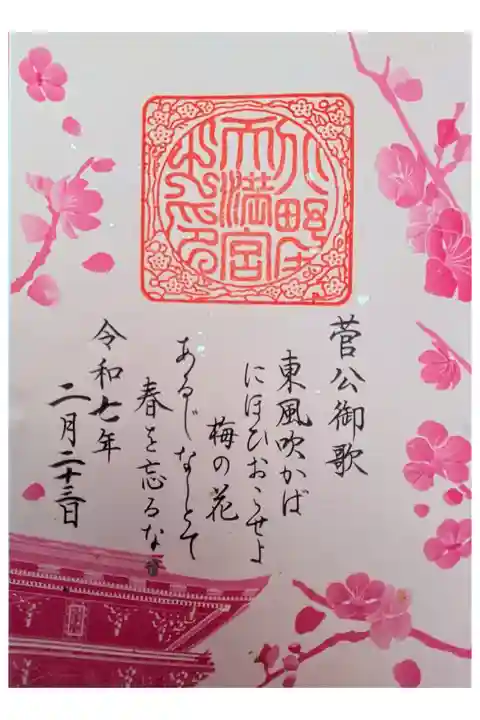 天満宮
之印
菅公御歌
東風吹かば
にほひおこせよ
梅の花
あるじなしとて
春を忘るな
令和七年
二月二十三日